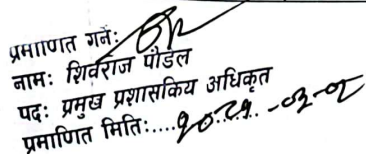 प्रमाणित गर्नेः
नामः शिवराज पौडेल
पदः प्रमुख प्रशासकिय अधिकृत
प्रमाणित मितिः....२०८१-०३-०८